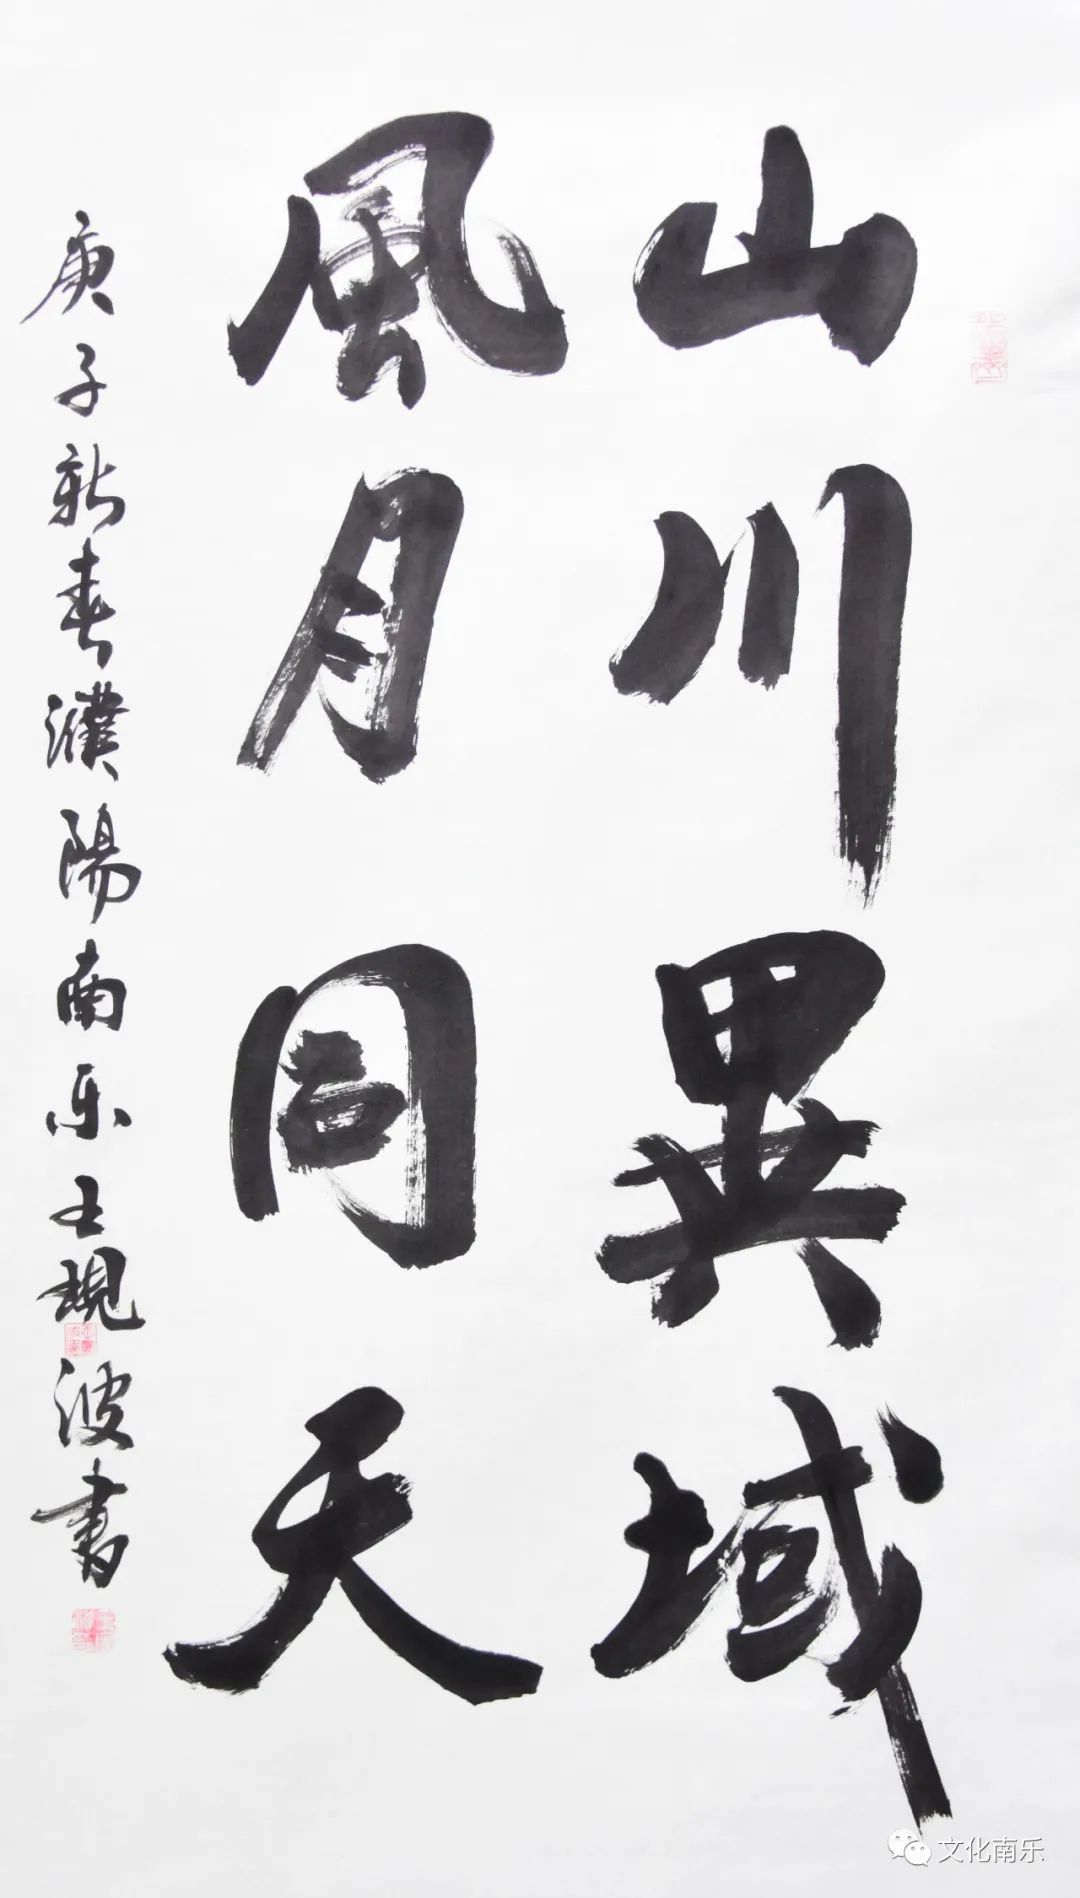 山川異域
風月同天
庚子新春濮陽南乐王現波書
文化南乐